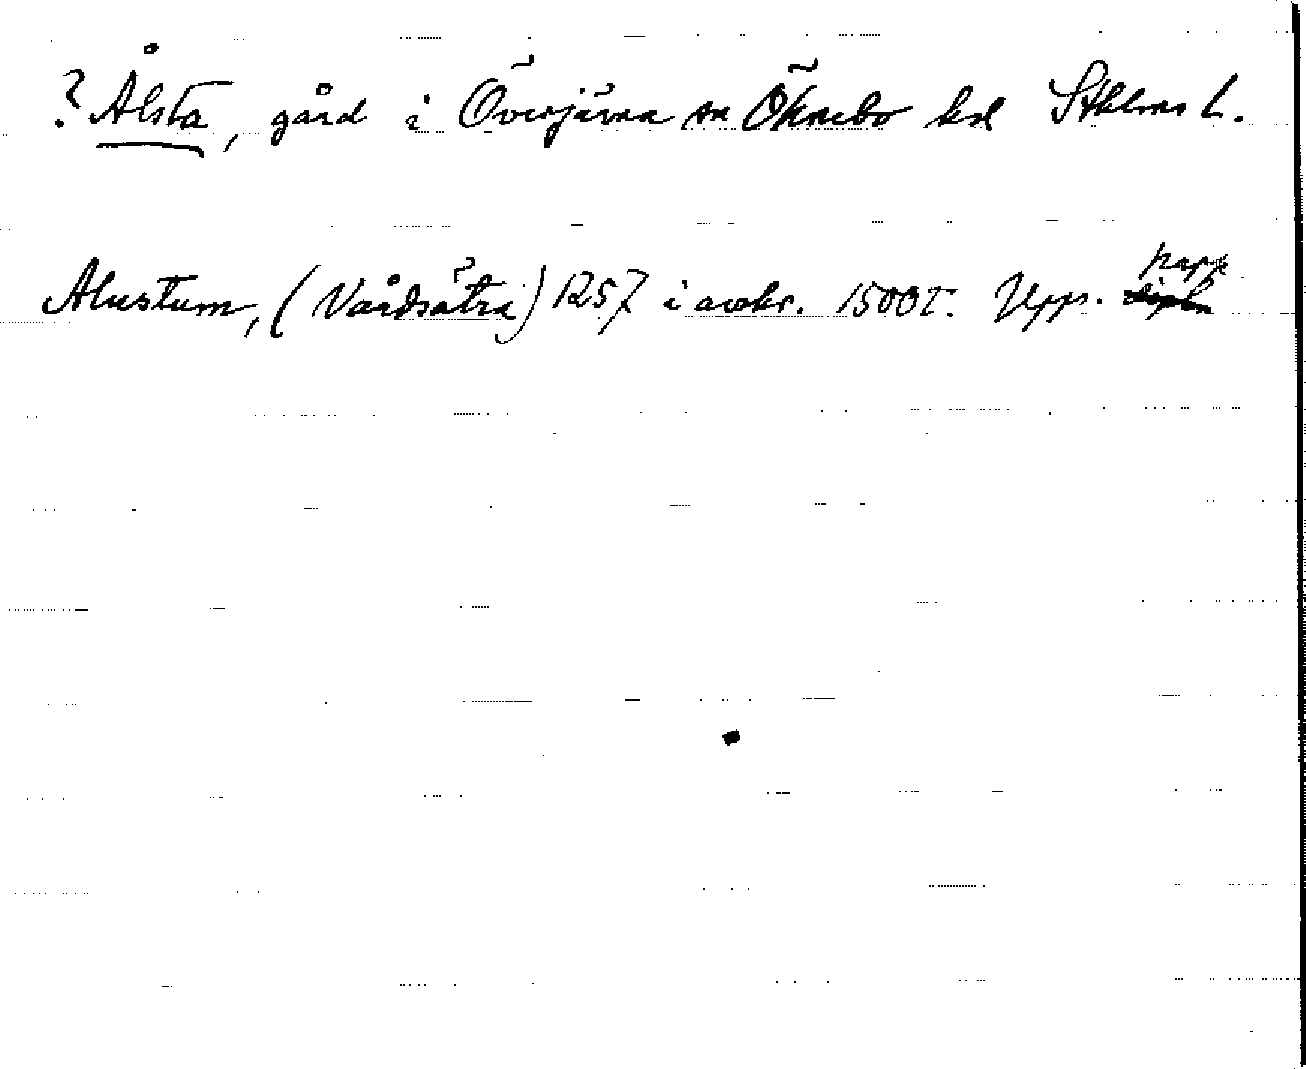 ? Ålsta, gård i Överjärna sn Öknebo hd Sthlms l.
Alustum, (Vårdsätra) 1257 i avskr. 1500t. Upps. papp